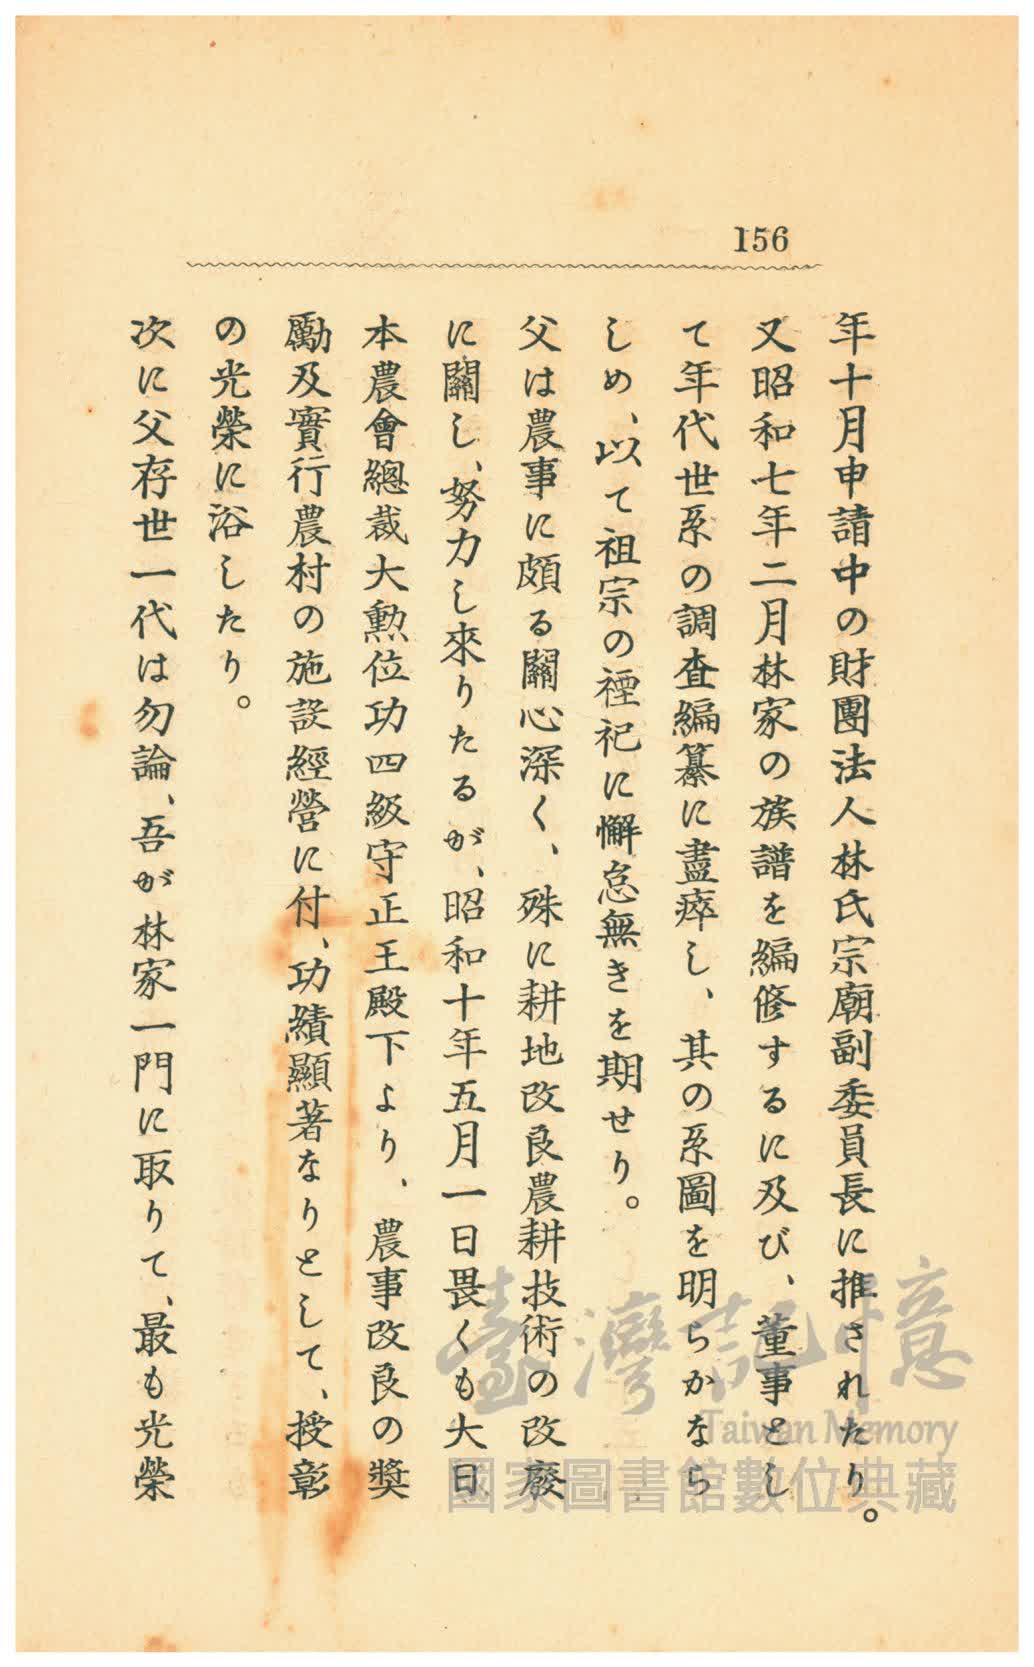 156
年十月申請中の財團法人林氏宗廟副委員長に推されたり。
又昭和七年二月林家の族譜を編修するに及び、董事とし
て年代世系の調査編纂に盡瘁し、其の系圖を明らかなら
しめ、以て祖宗の禋祀に懈怠無きを期せり。
父は農事に頗る關心深く、殊に耕地改良農耕技術の改廢
に關し、努力し來りたるが、昭和十年五月一日畏くも大日
本農會總裁大勲位功四級守正王殿下より、農事改良の奬
勵及實行農村の施設經營に付、功績顯著なりとして、授彰
の光榮に浴したり。
次に父存世一代は勿論、吾が林家一門に取りて、最も光榮
臺灣記憶
Taiwan Memory
國家圖書館數位典藏